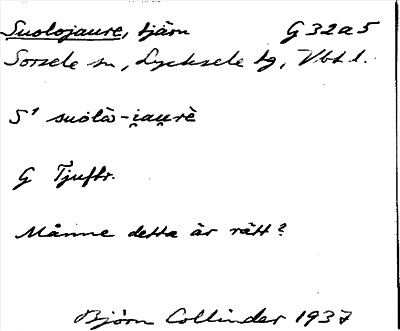 Suolojaure, tjärn G 32 a 5
Sorsele sn, Lycksele lg, Vbtl.
S¹ suo̊lå̀-i̯au̯rè
G Tjuftr.
Månne detta är rätt?
Björn Collinder 1937